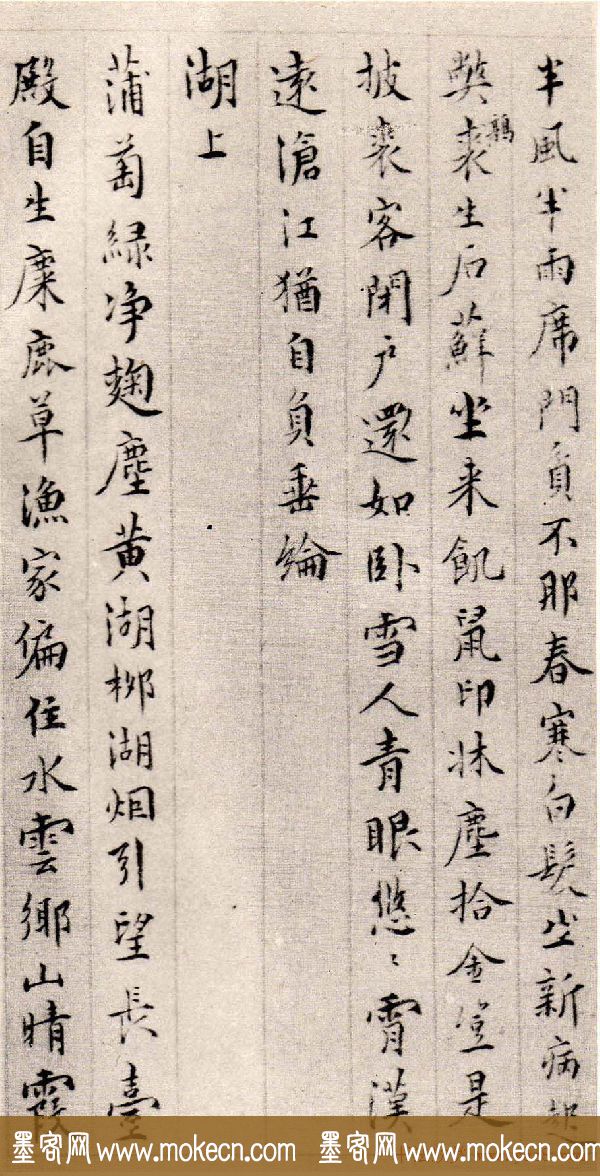 半風半雨席門貧不那春寒白髮新病起
弊裘生石蘚坐来飢鼠印牀塵拾金豈是
鶉
披裘客閉户還如卧雪人青眼悠〻霄漢
遠滄江猶自負垂綸
湖上
蒲萄緑净麴塵黄湖柳湖烟引望長臺
殿自生麋鹿草漁家偏住水雲鄉山晴霞
墨客网 www.mokecn.com 墨客网 www.mokecn.com